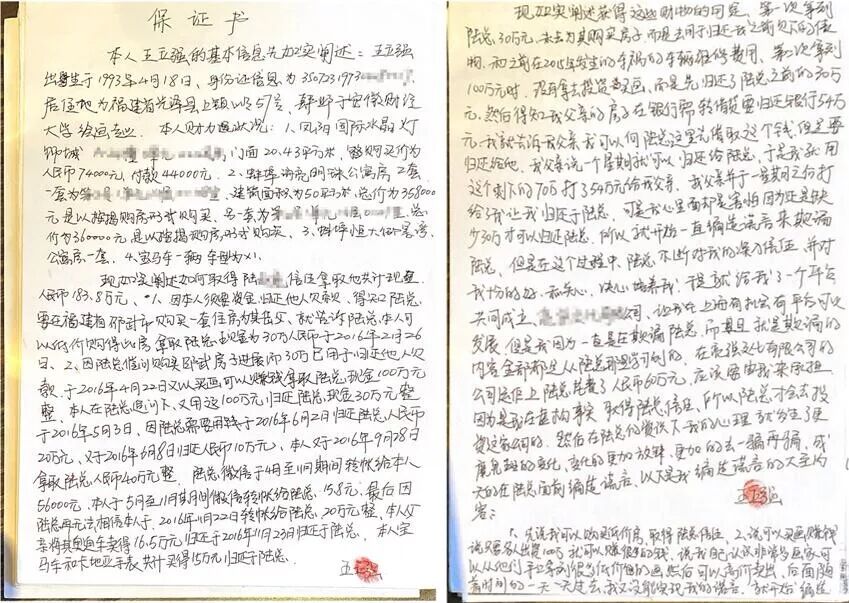 保证书
本人王立强的基本信息先如实阐述：王立强
出生于1993年4月18日、身份证信息为3507231973
居住地为福建省光泽县上观山57号、毕业于安徽财经
大学绘画专业．本人财力近状况：1.凤阳国际水晶灯
饰城 门面20.43平方米，购买价为
人民币74000元，付款44000元。2、蚌埠 明珠公寓房2套
一套为 建筑面积为50平方米，总价为358000
元是以按揭购房形式购买、另一套为 总
价为360000元是以按揭购房形式购买、3、蚌埠恒大
公寓房一套、4、宝马车一辆 车型为X1、
现如实阐述如何取得陆 信任拿取他共计现金
人民币183.8万元、1、因本人须要资金归还他人欠款、得知陆总
要在福建省邵武市购买一套住房为其岳父、就告诉陆总本人可
以低价购得此房 拿取陆总现金为30万元于2016年2月26
日、2、因陆总借问购买邵武房子进展而30万已用于归还他人欠
款、于2016年4月22日又以买画可以赚钱拿取陆总现金100万元
整、本人在陆总追问下、又用这100万元归还陆总现金30万元整
于2016年5月3日、因陆总需要用钱于2016年6月2日归还陆总人民币
20万元、又于2016年6月8日归还人民币10万元、本人又于2016年9月28日
拿取陆总人民币40万元整、陆总微信于4月至11月期间转帐给本人
56000元、本人于5月至11月其间微信转帐给陆总、15.8元、最后因
陆总再无法相信本人于、2016年11月22日转帐给陆总、20万元整、本人父
亲将其奥迪车卖得16.5万元归还于2016年11月23日归还于陆总、本人宝
马车和卡地亚手表共计买得15万元归还于陆总、
王立强
现如实阐述获得这些财物的用途、第一次拿到
陆总，30万元、未去为其购买房子、而是去用于归还我之前欠下的债
物、和之前在2015年发生的车祸的车辆维修费用、第二次拿到
100万元时、没有拿去投资买画、而是先归还了陆总之前的30万
元、然后得知我父亲的房子在银行需转借贷要归还银行54万
元、我就告诉我父亲 我可以向陆总这里先借取这个钱、但是要
归还给他、我父亲说一个星期就可以归还给陆总，于是我就用
这个剩下的70万打了54万元给我父亲、我父亲于一个星期之后打
给了我让我归还于陆总、可是我心里面却是害怕因为还是缺
少30万才可以归还陆总、所以我开始一直编造谎言来欺骗
陆总、但是在这个过程中、陆总不断对我的深为信任、并对
我十分的好、和关心、决心培养我、于是就给我了一个平台
共同成立、 公司、让我在上海有机会有平台可以
发展、但是我因为一直是在欺骗陆总、而且就是欺骗的
内容全部都是从陆总那里学到的、在 文化有限公司的
公司运作上陆总花费了人民币60万元、应该需由我来承担
因为是我在虚构事实 取得陆总信任、所以陆总才会去投
资这家公司的、然后在陆总的资说下我的心理就发生了更
的变化、变化的更加放肆、更加的去一骗再骗、成
天的在陆总面前编造谎言、以下是我编造谎言的大至内
容： 王立强
1、先说我可以购买低价房、取得陆总信任、2、说可以买画赚钱
说只要客人出资100万就可以赚很多的钱、说我自己认识非常多画家可
以从他们手上拿到很多低价的画然后可以高价卖出、后面随
着时间的一天一天过去、我又没能实现我的谎言、就开始编造